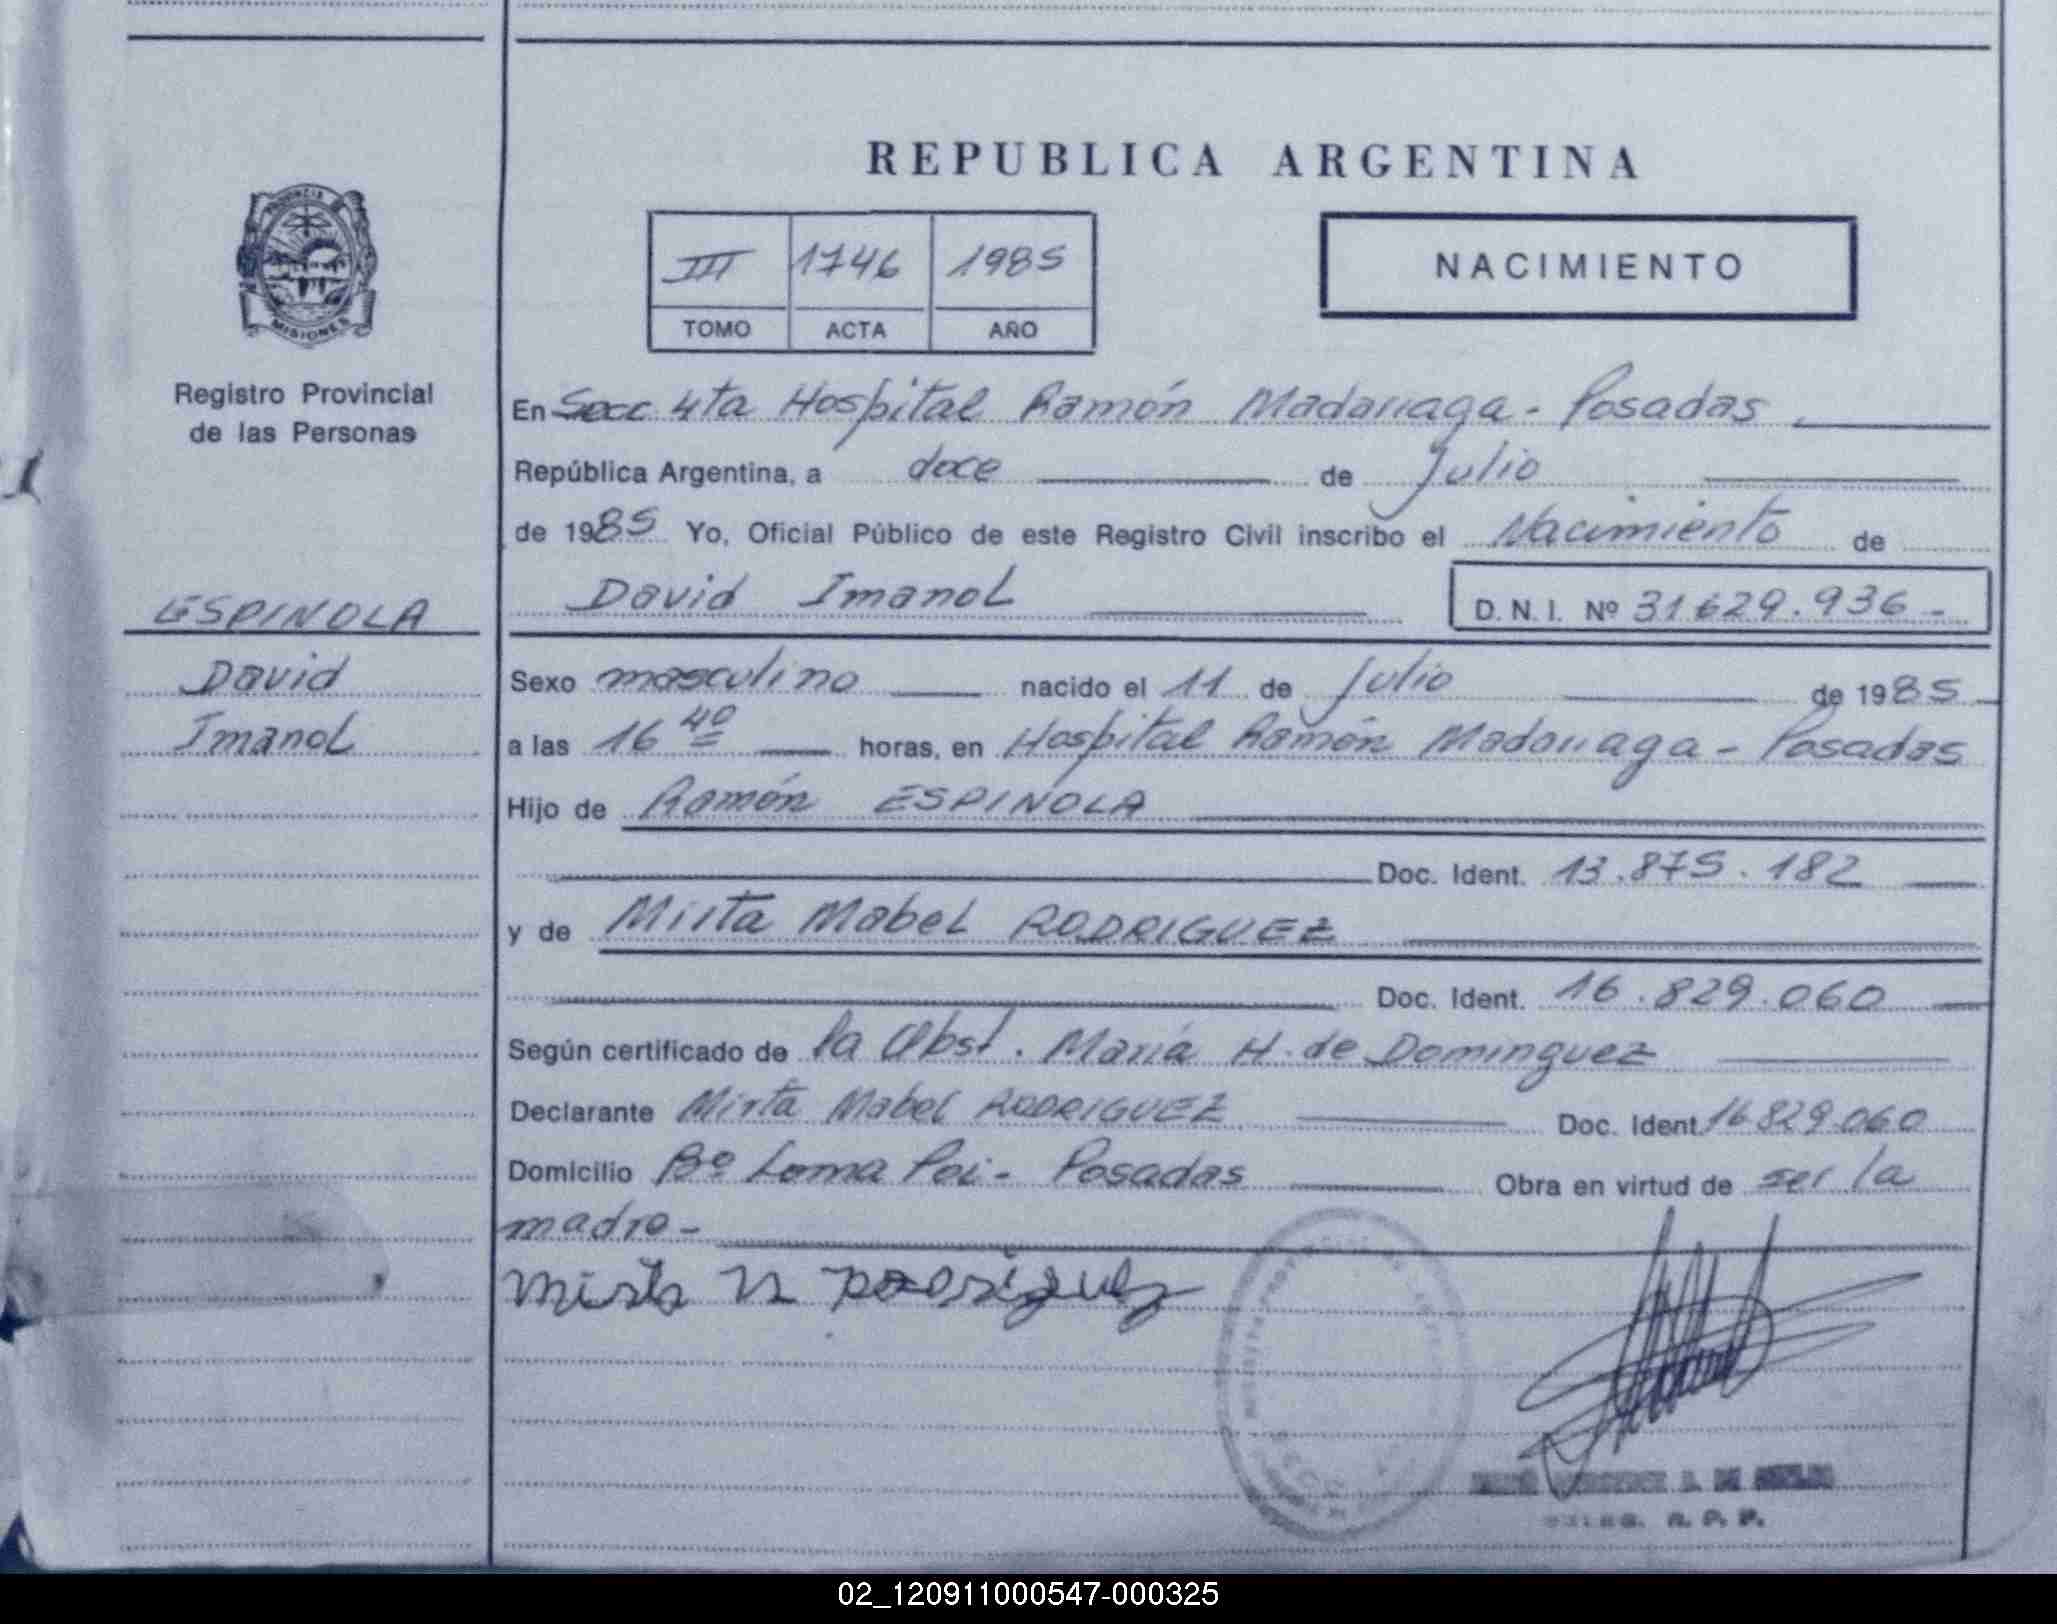 REPUBLICA ARGENTINA
PROVINCIA DE
MISIONES
Registro Provincial
de las Personas
III 1746 1985
TOMO ACTA AÑO
NACIMIENTO
En Secc 4ta Hospital Ramón Madariaga - Posadas
República Argentina, a doce de Julio
de 1985 Yo, Oficial Público de este Registro Civil inscribo el Nacimiento de
David Imanol D. N. I. Nº 31.629.936 -
ESPINOLA
David
Imanol
Sexo masculino nacido el 11 de Julio de 1985
a las 16 40 horas, en Hospital Ramón Madariaga - Posadas
Hijo de Ramón ESPINOLA
Doc. Ident. 13.875.182
y de Mirta Mabel RODRIGUEZ
Doc. Ident. 16.829.060
Según certificado de la Obst. María H. de Dominguez
Declarante Mirta Mabel RODRIGUEZ Doc. Ident. 16.829.060
Domicilio Bº Loma Poi - Posadas Obra en virtud de ser la
madre -
Mirta M Rodriguez
R. P. P.
02_120911000547-000325